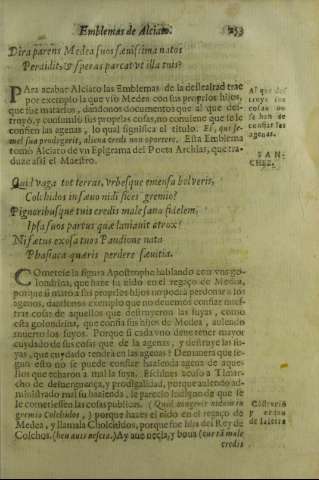 Emblemas de Alciato. 253
Dira parens Medea suos sæuissima natos
Perdidit, & speras parcat vt illa tuis?
PAra acabar Alciato las Emblemas de la deslealtad trae
por exemplo la que vso Medea con sus proprios hijos,
que fue matarlos, dandonos documento q̃ al que des-
truyó, y consumió sus proprias cosas, no conuiene que se le
confien las agenas, lo qual significa el titulo: Ei, qui se-
mel sua prodegerit, aliena credi non oportere. Esta Emblema
tomó Alciato de vn Epigrama del Poeta Archias, que tra-
duze assi el Maestro.
Al que des-
truye sus
cosas no
se han de
confiar las
agenas.
SAN-
CHEZ.
Quid vaga tot terras, vrbesque emensa volueris,
Colchidos in sæuo nidifices gremio?
Pignoribusque tuis credis male sana fidelem,
Ipsa suos partus quæ laniauit atrox?
Ni sætus exosa tuos Pandione nata
Phasiaca quæris perdere sæuitia.
COmetese la figura Apostrophe hablando con vna go-
londrina, que haze su nido en el regaço de Medea,
porque si mató a sus proprios hijos no podia perdonar a los
agenos, dandonos exemplo que no deuemos confiar nues-
tras cosas de aquellos que destruyeron las suyas, como
esta golondrina, que confia sus hijos de Medea, auiendo
muerto los suyos. Porque si cada vno deue tener mayor
cuydado de sus cosas que de la agenas, y destruye las su-
yas, que cuydado tendrá en las agenas? Demanera que se-
gun esto no se puede confiar hazienda agena de aque-
llos que echaron a mal la suya. Eschines acusó a Timar-
cho de desuerguença, y prodigalidad, porque auiendo ad-
ministrado mal su hazienda, le parecio indigno de que se
le cometiessen las cosas publicas. (Quid congeris nidum in
gremio Colchidos,) porque hazes el nido en el regaço de
Medea, y llamala Cholchidos, porque fue hija del Rey de
Colchos. (heu auis nescia.) Ay aue necia, y boua (cur tã male
credis
de la letra